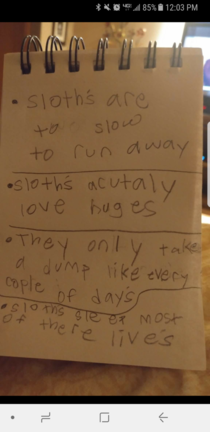 85% 12:03 PM
• Sloths are
to slow
to run away
• sloths acutaly
love huges
• They only take
a dump like every
cople of day's
• sloths sleep most
of there lives